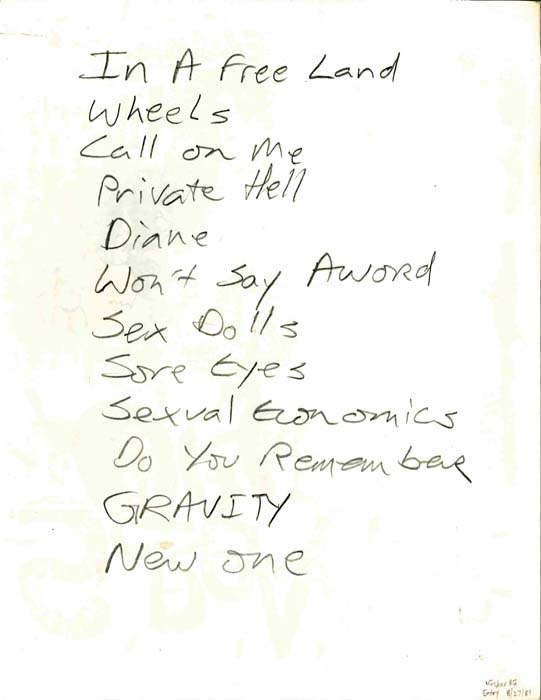 In A Free Land
Wheels
Call on Me
Private Hell
Diane
Won't Say A Word
Sex Dolls
Sore Eyes
Sexual Economics
Do You Remember
GRAVITY
New one
Entry 8/27/81